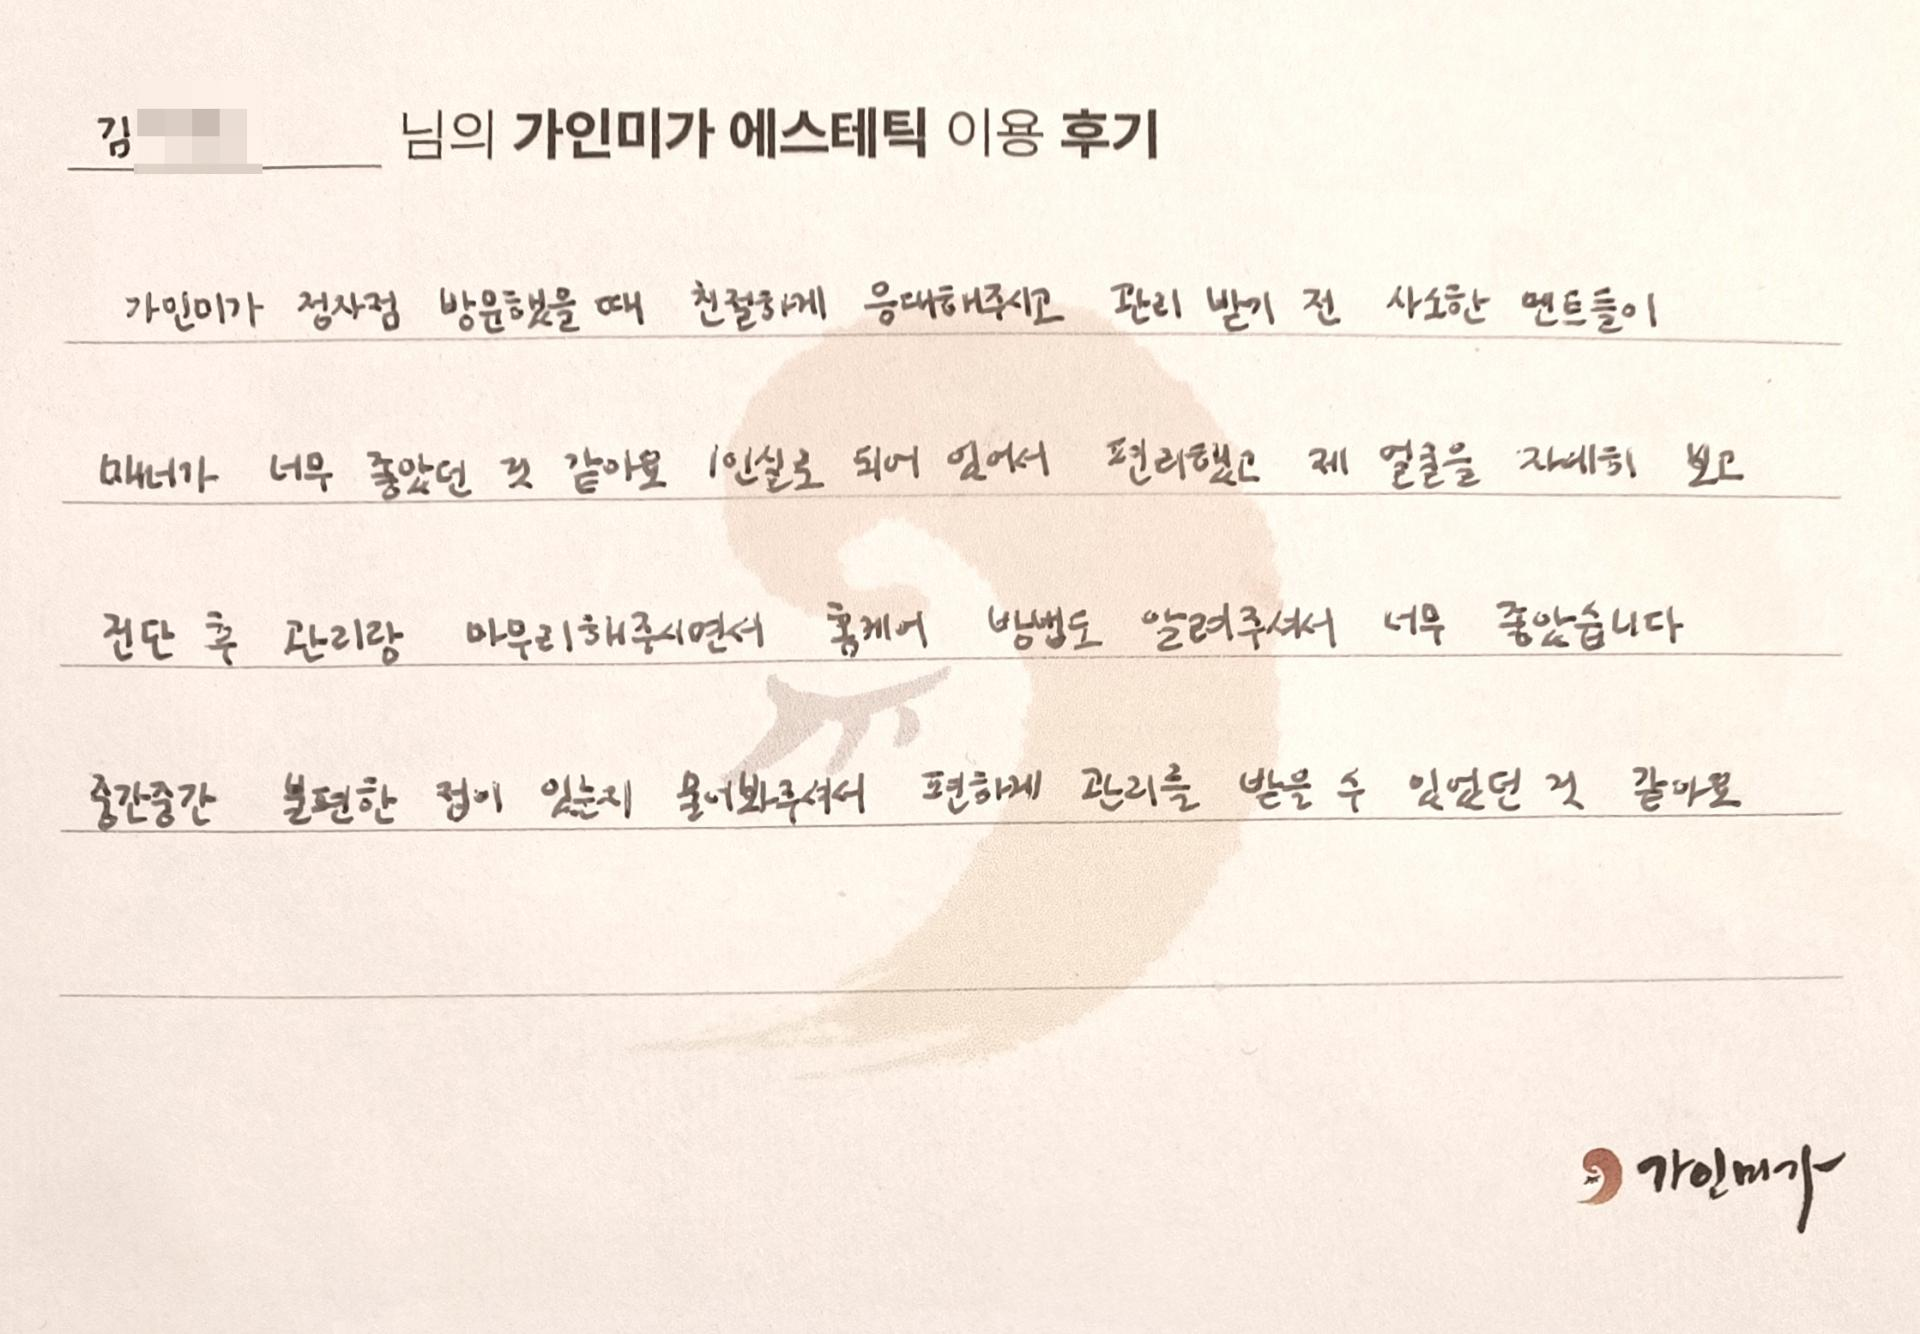 김 님의 가인미가 에스테틱 이용 후기
가인미가 정자점 방문했을 때 친절하게 응대해주시고 관리 받기 전 사소한 멘트들이
매너가 너무 좋았던 것 같아요 1인실로 되어 있어서 편리했고 제 얼굴을 자세히 보고
진단 후 관리랑 마무리해주시면서 홈케어 방법도 알려주셔서 너무 좋았습니다
중간중간 불편한 점이 있는지 물어봐주셔서 편하게 관리를 받을 수 있었던 것 같아요
가인미가